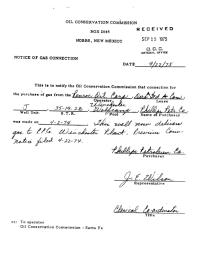 OIL CONSERVATION COMMISSION
BOX 2045
HOBBS, NEW MEXICO
RECEIVED
SEP 15 1975
O.C.C.
ARTESIA, OFFICE
NOTICE OF GAS CONNECTION
DATE
This is to notify the Oil Conservation Commission that connection for
the purchase of gas from the
Operator
Lease
J
Well Unit
S.T.R.
Pool
Name of Purchaser
was made on 4-2-74. This well now delivers
gas to Winchester Plant. Previous Conn-
notice filed 4-22-74.
Phillips Petroleum Co.
Purchaser
Representative
Clerical Coordinator
Title
cc: To operator
Oil Conservation Commission - Santa Fe